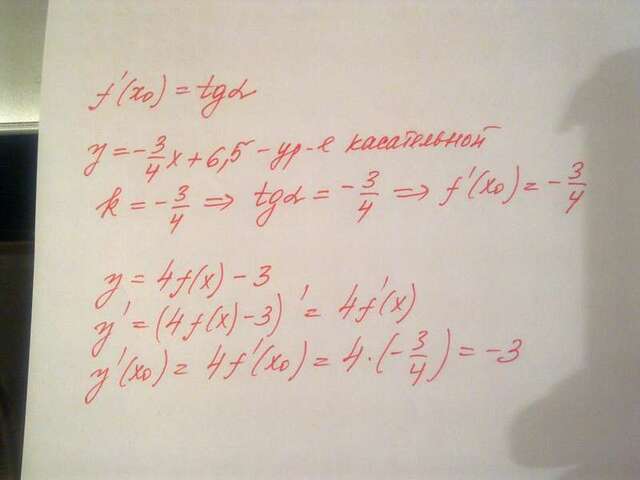 f'(x₀) = tgα
y = -3/4 x + 6,5 - ур-е касательной
k = -3/4 ⇒ tgα = -3/4 ⇒ f'(x₀) = -3/4
y = 4f(x) - 3
y' = (4f(x) - 3)' = 4f'(x)
y'(x₀) = 4f'(x₀) = 4·(-3/4) = -3